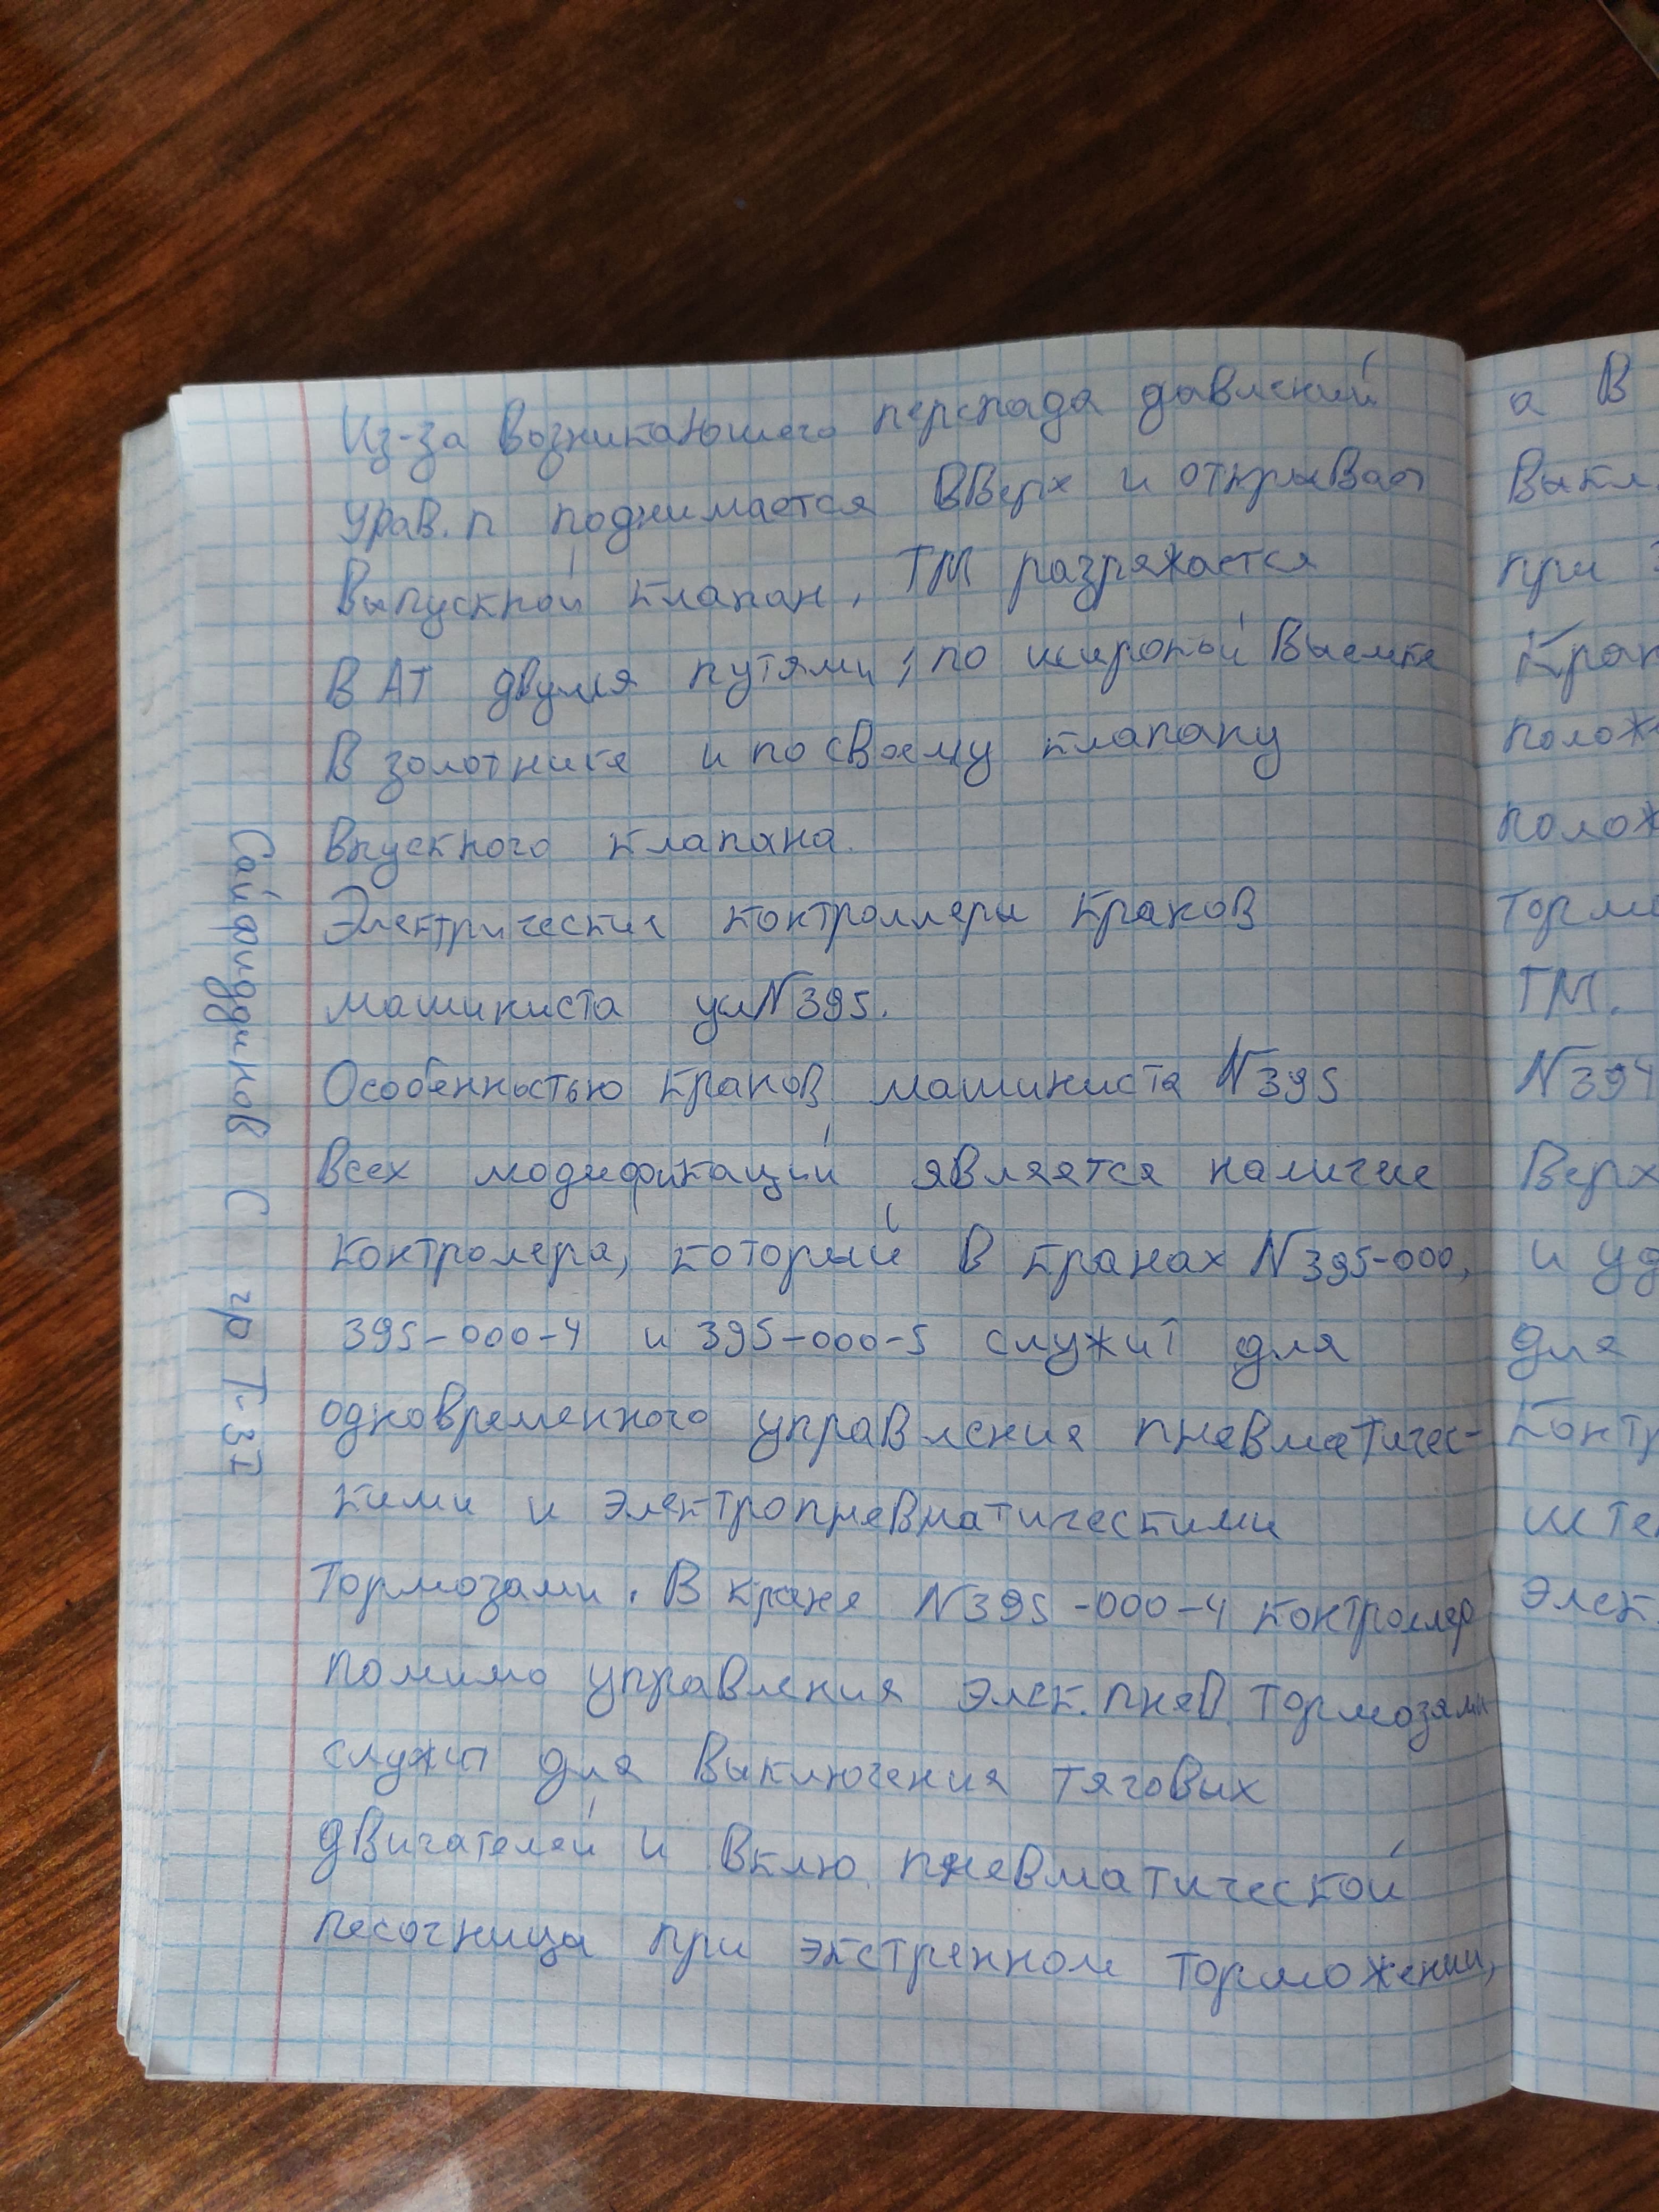 Из-за возникаюшего перепада давлений
урав. п поднимается вверх и открывает
выпускной клапан, ТМ разряжается
в АТ двумя путями, по широкой выемке
в золотнике и по своему клапану
впускного клапана.
Электрические контроллеры кранов
машиниста усл N395.
Особенностью кранов машиниста N395
всех модификаций является наличие
контролера, который в кранах N395-000,
395-000-4 и 395-000-5 служит для
одновременного управления пневматичес-
кими и электропневматическими
тормозами. В кране N395-000-4 контроллер
помимо управления элек. пнев. тормозами
служит для выключения тяговых
двигателей и вклю. пневматической
песочница при экстренном торможении,
Сайфиддинов С гр Т-31
а в
выкл.
при
Кран
полож
полож
тормо
ТМ.
N394
верх
и уд
для
контр
ште
элек.